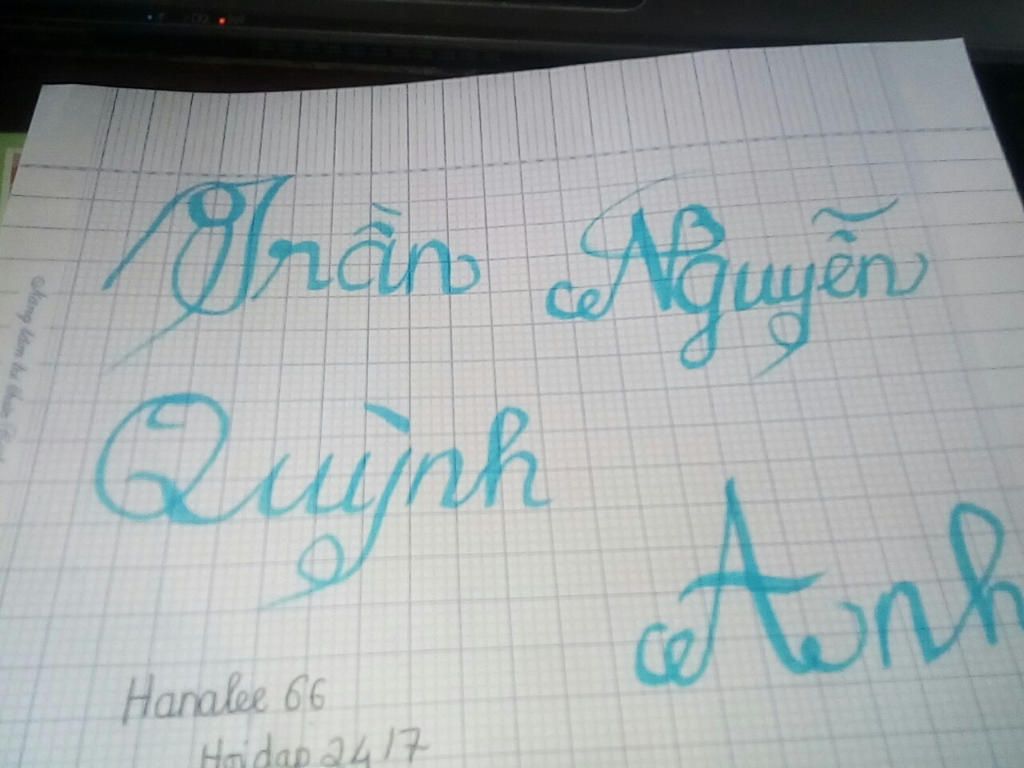 Trần Nguyễn
Quỳnh
Anh
Hanalee 66
Hoidap 247